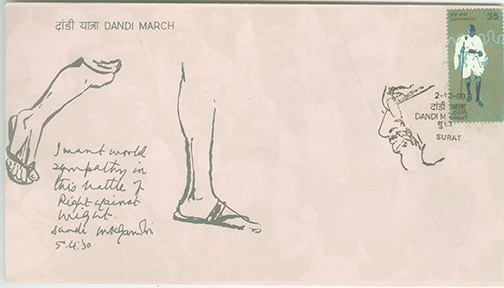 दांडी यात्रा DANDI MARCH
35
2-10-80
दांडी यात्रा
DANDI M
SURAT
I want world
sympathy in
this battle of
Right against
Might.
Dandi MKGandhi
5.4.30